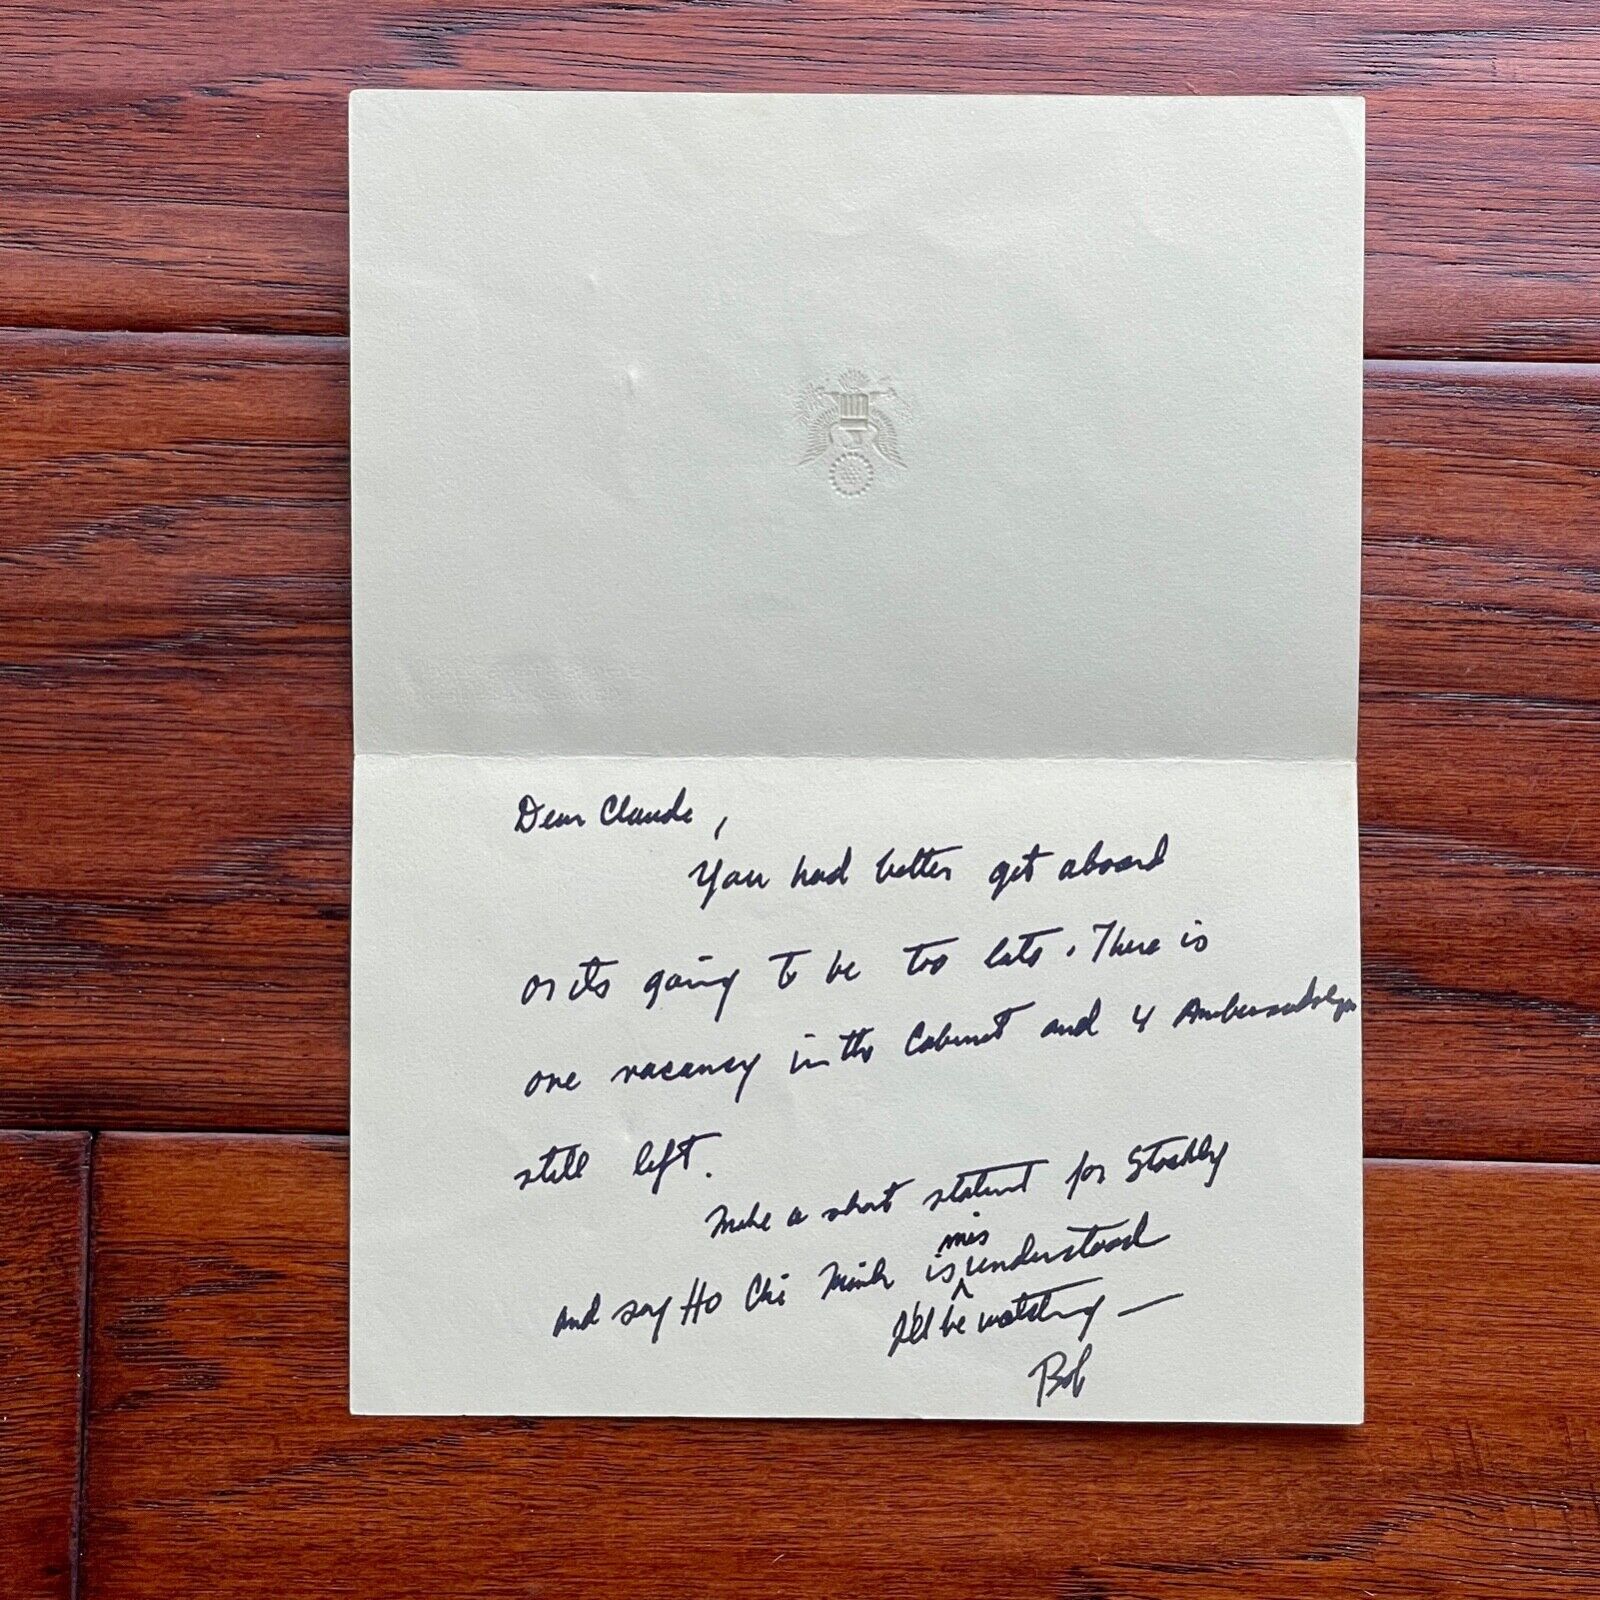 Dear Claude,
You had better get aboard
or its going to be too late. There is
one vacancy in the Cabinet and 4 Ambassadorships
still left.
Make a short statement for Stockely
and say Ho Chi Minh is misunderstood
I'll be watching —
Bob